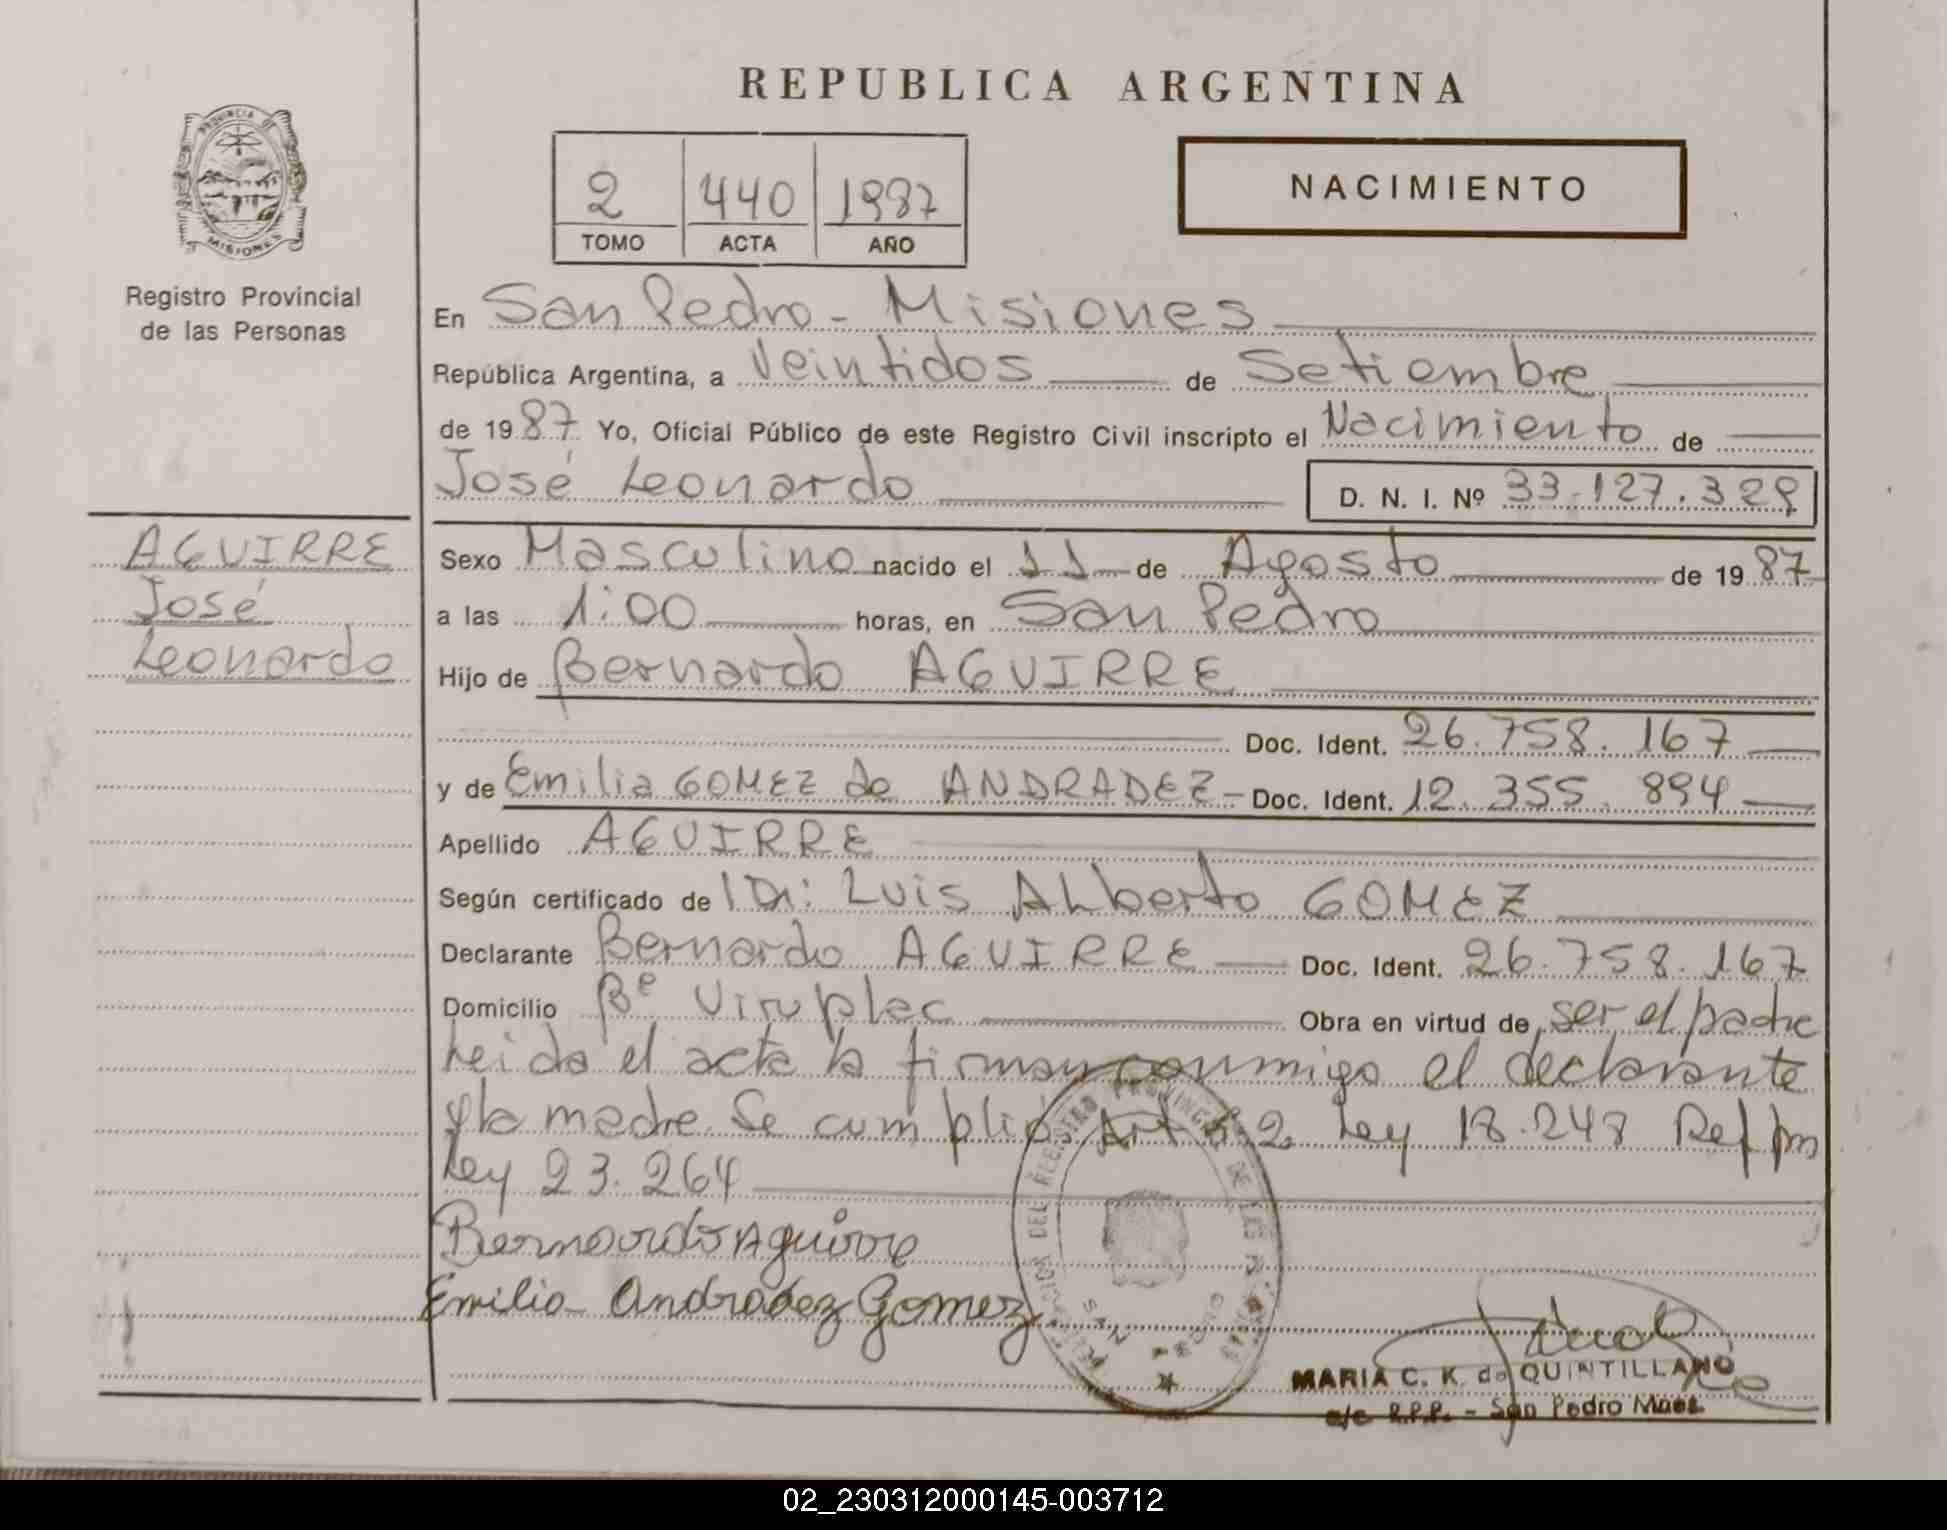 REPUBLICA ARGENTINA
PROVINCIA DE MISIONES
Registro Provincial
de las Personas
2 440 1987
TOMO ACTA AÑO
NACIMIENTO
En San Pedro - Misiones
República Argentina, a Veintidos de Setiembre
de 1987 Yo, Oficial Público de este Registro Civil inscripto el Nacimiento de
José Leonardo D. N. I. Nº 33.127.329
AGUIRRE
José
Leonardo
Sexo Masculino nacido el 11 de Agosto de 1987
a las 1:00 horas, en San Pedro
Hijo de Bernardo AGUIRRE
Doc. Ident. 26.758.167
y de Emilia GOMEZ de ANDRADEZ - Doc. Ident. 12.355.894
Apellido AGUIRRE
Según certificado de Dr: Luis ALberto GOMEZ
Declarante Bernardo AGUIRRE Doc. Ident. 26.758.167
Domicilio Bº Obra en virtud de ser el padre
Leida el acta la firman conmigo el declarante
y la madre. Se cumplió Art 2 Ley 18.248 Ref por
Ley 23.264
Bernardo Aguirre
Emilia Andradez Gomez
DEL REGISTRO PROVINCIAL DE LAS PERSONAS
SAN PEDRO
MARIA C. K. de QUINTILLANO
a/c R.P.P. - San Pedro Mnes.
02_230312000145-003712